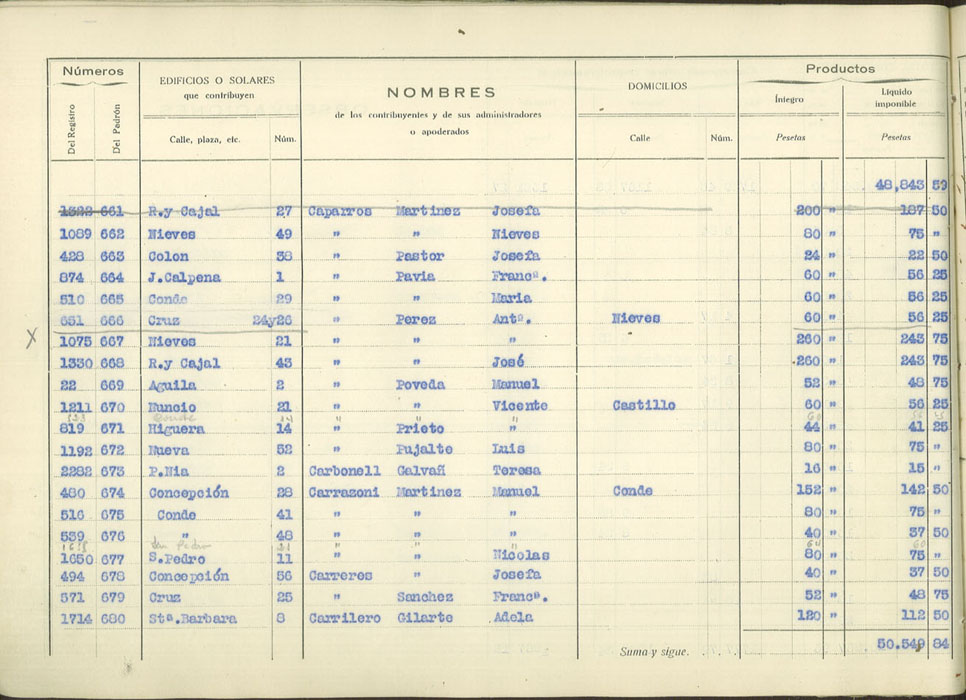 Números EDIFICIOS O SOLARES que contribuyen NOMBRES de los contribuyentes y de sus administradores o apoderados DOMICILIOS Productos
Del Registro Del Padrón Calle, plaza, etc. Núm. Calle Núm. Íntegro Pesetas Líquido imponible Pesetas
48,843 59
1322 661 R.y Cajal 27 Caparros Martinez Josefa 200 " 187 50
1089 662 Nieves 49 " " Nieves 80 " 75 "
428 663 Colon 38 " Pastor Josefa 24 " 22 50
874 664 J.Calpena 1 " Pavia Francª. 60 " 56 25
510 665 Conde 29 " " Maria 60 " 56 25
651 666 Cruz 24y26 " Perez Antª. Nieves 60 " 56 25
X
1075 667 Nieves 21 " " " 260 " 243 75
1330 668 R.y Cajal 43 " " José 260 " 243 75
22 669 Aguila 2 " Poveda Manuel 52 " 48 75
1211 670 Nuncio 21 " " Vicente Castillo 60 " 56 25
819 671 Higuera 14 " Prieto " 44 " 41 25
1192 672 Nueva 52 " Pujalte Luis 80 " 75 "
2282 673 P.Nia 2 Carbonell Galvañ Teresa 16 " 15 "
480 674 Concepción 28 Carrazoni Martinez Manuel Conde 152 " 142 50
516 675 Conde 41 " " " 80 " 75 "
539 676 " 48 " " " 40 " 37 50
San Pedro
1650 677 S.Pedro 11 " " Nicolas 80 " 75 "
494 678 Concepción 56 Carreres " Josefa 40 " 37 50
571 679 Cruz 25 " Sanchez Francª. 52 " 48 75
1714 680 Stª.Barbara 8 Carrilero Gilarte Adela 120 " 112 50
Suma y sigue. 50.549 84